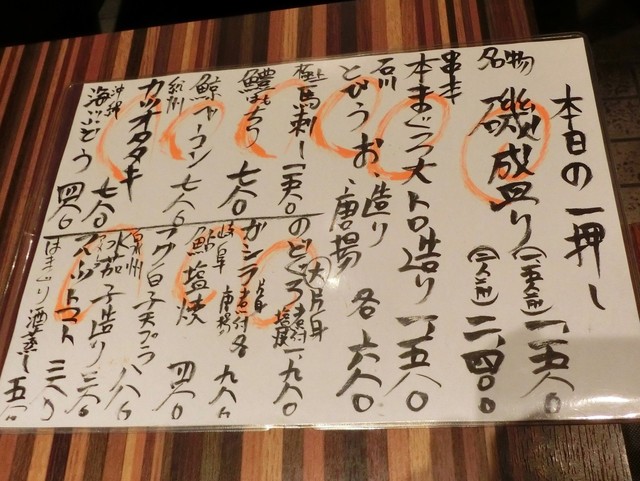 本日の一押し
名物 磯成盛り (一、五人前) 一、五八〇
(二人前) 二、四〇〇
串本 本まぐろ大トロ造り 一、五八〇
石川 とびうお、造り、唐揚 各六八〇
極上 馬刺し 一、二八〇
鱧ちり 七八〇
紀州 鯨ベーコン 七八〇
カツオタタキ 七八〇
沖縄 海ぶどう 四八〇
のどぐろ 大片身 煮付 塩焼 一、九八〇
ガシラ 煮付 唐揚 各九八〇
岐阜 鮎塩焼 四八〇
フグ白子天プラ 八八〇
泉州 水茄子造り 三八〇
フルーツトマト 三八〇
はまぐり酒蒸し 五八〇